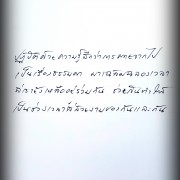 ปฏิบัติด้วยความรู้สึกว่าการตายจากไป
เป็นเรื่องธรรมดา มาเฉลิมฉลองเวลา
ที่เรายังเหลืออยู่ร่วมกัน ช่วยกันทำให้
เป็นช่วงเวลาที่สวยงามของกันและกัน